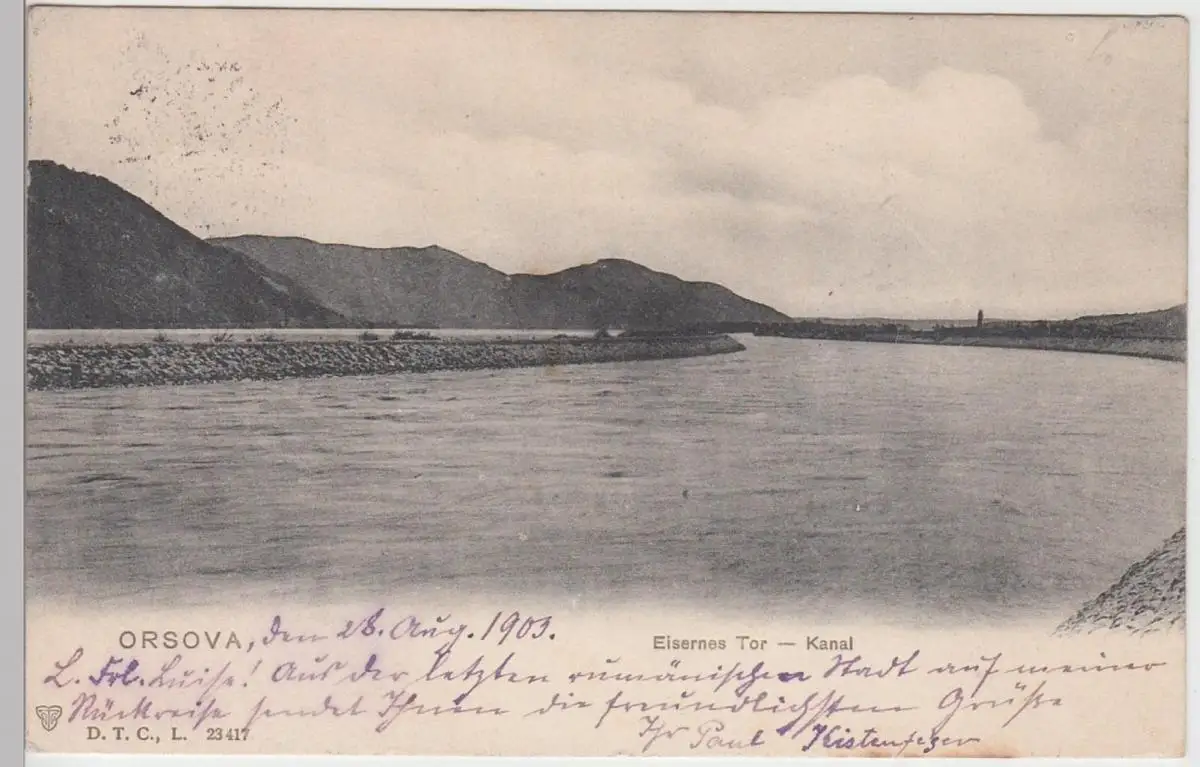 ORSOVA, den 28. Aug. 1903.
Eisernes Tor — Kanal
L. Frl. Luise! Aus der letzten rumänischen Stadt auf meiner
Rückreise sendet Ihnen die freundlichsten Grüße
Ihr Paul
D. T. C., L. 23417